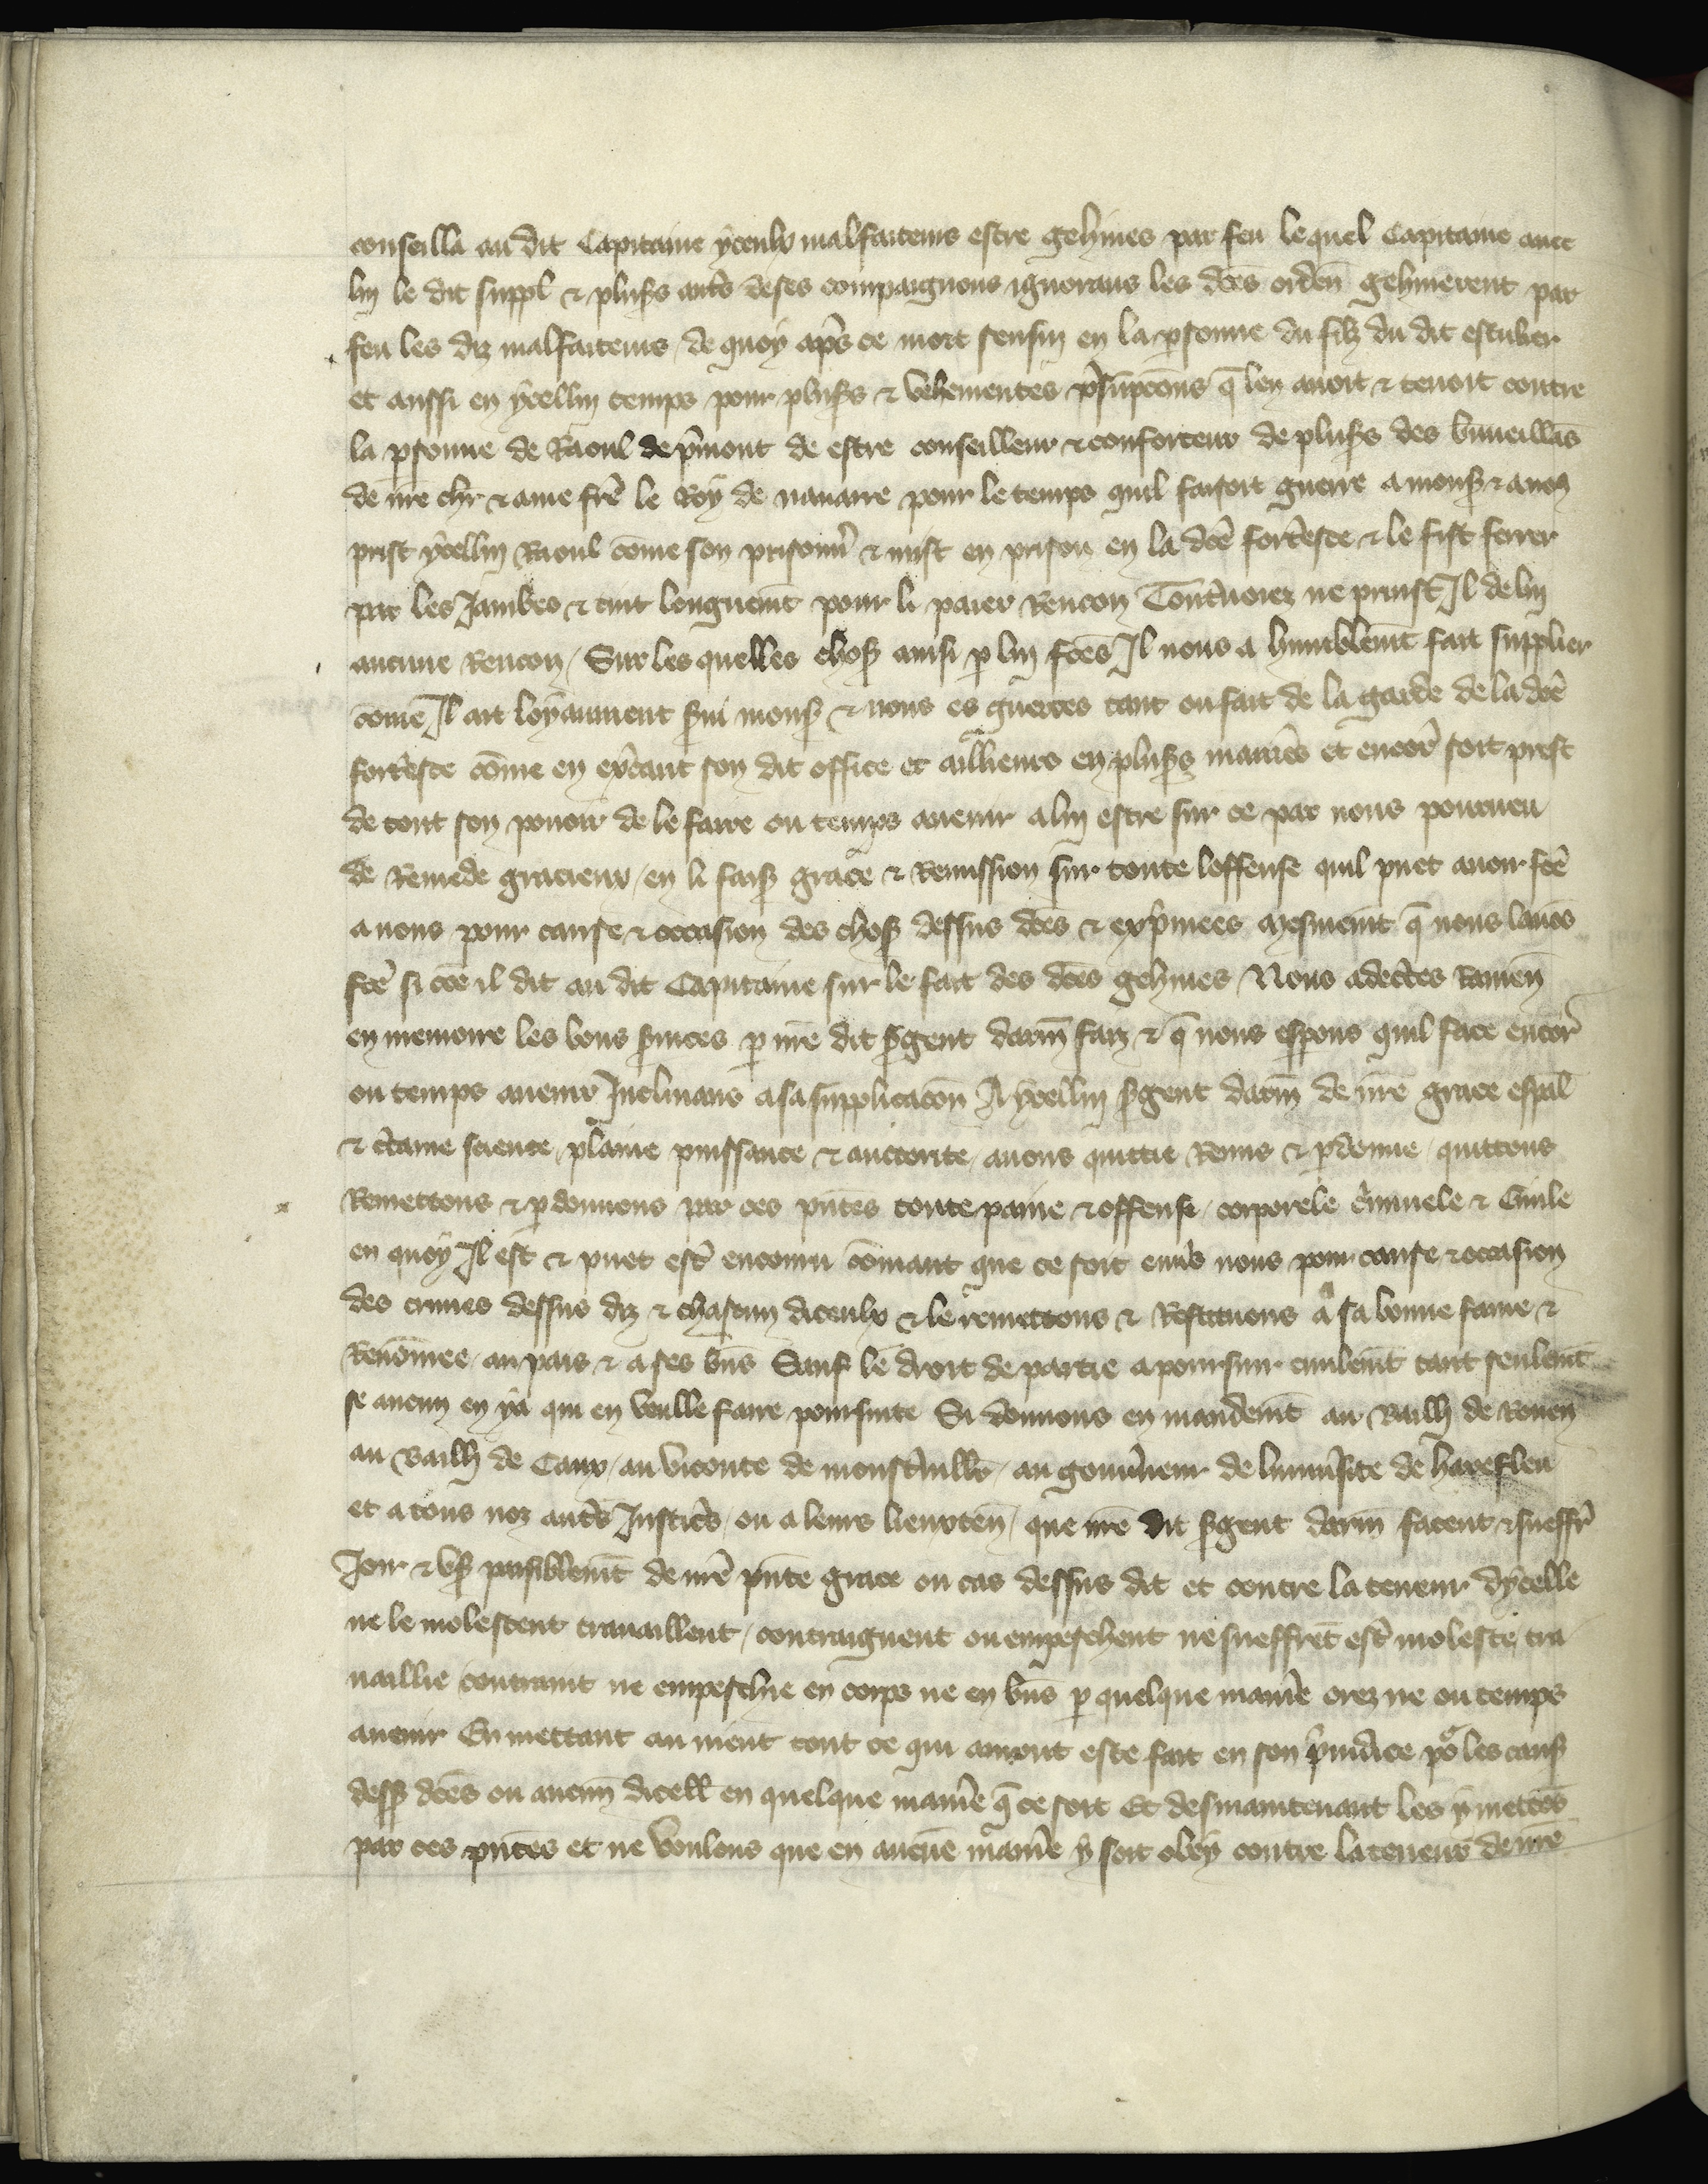 conseilla au dit Capitaine yceulx malfaiteurs estre gehines par feu lequel Capitaine avec
luy le dit suppl & plus̄s aut̄s de ses compaignons ignorans les dc̄es ordeñ gehinerent par
feu les diz malfaiteurs de quoy ap̄s ce mort sensuy en la p̄sonne du filz du dit escuier
et aussi en ycelluy temps pour plus̄s & vehementes p̄sumpcōns q̄ len avoit & tenoit contre
la p̄sonne de Raoul de p̄mont de estre conseilleur & conforteur de plus̄s des bnveillās
de nr̄e chr̄ & ame frēe le Roy de navarre pour le temps quil faisoit guerre a mons̄ & a nous
prist ycellui Raoul cōme son prisonn̄ & mist en prison en la dc̄e fort̄esce & le fist ferrer
par les Jambes & tint longuemt̄ pour li paier Rencon Toutvoiez ne prinst Il de luy
aucune Rencon / Sur les quelles chos̄ ainsi p̄ luy fc̄es Il nous a humblemt̄ fait supplier
cōme Il ait loyaument s̄vi mons̄ & nous es guerres tant ou fait de la garde de la dc̄e
fort̄esce cōme en exēcant son dit office et aillieurs en plus̄s manir̄es et encor̄ soit prest
de tout son povoir de le faire ou temps avenir a luy estre sur ce par nous pourveu
de Remede gracieux / en li fais̄ grace & Remission sur toute loffense quil puet avoir fc̄e
a nous pour cause & occasion des chos̄ dessus dc̄es & exp̄mees mesmemt̄ q̄ nous lavōs
fc̄e si cōe il dit au dit Capitaine sur le fait des dc̄es gehines / Nous adecertes Ramen̄
en memoire les bons s̄vices p̄ nr̄e dit s̄gent darm̄ faiz & q̄ nous esp̄ons quil face encor̄
ou temps avenir Inclinans a sa supplicacōn A ycellui s̄gent darm̄ de nr̄e grace esp̄al
& c̄taine science / plaine puissance & auctorite / avons quittie Remis & p̄donne / quittons
Remettons & p̄donnons par ces pn̄tes toute paine & offense / corporele c̄iminele & Civile
en quoy Il est & puet est̄ encouru cōmant que ce soit env̄s nous pour cause & occasion
des crimes dessus diz & chascun diceulx & le remettons & Restituons a sa bonne fame &
Renōmee / au pais & a ses bn̄s Sauf le droit de partie a poursuir civilemt̄ tant seulemt̄
se aucun en ya qui en veulle faire poursuite Si donnons en mandemt̄ au Bailli de Rouen
au Bailli de Caux / au viconte de monst̄viller̄ / au gouv̄neur de luniv̄site de harefleu
et a tous noz aut̄s Justic̄s / ou a leurs lieuxten̄ / que nr̄e dit s̄gent darm̄ facent & sueffr̄
Joir & us̄ paisiblemt̄ de nr̄e pn̄te grace ou cas dessus dit et contre la teneur dycelle
ne le molestent travaillent / contraignent ou empeschent ne sueffrēt est̄ moleste / tra
vaillie contraint ne empeschie en corps ne en bn̄s p̄ quelque manir̄e orez ne ou temps
avenir En mettant au nient tout ce qui auroit este fait en son p̄iudice po^r les caus̄
dess̄ dc̄es ou aucun̄ dicell̄ en quelque manir̄e q̄ ce soit Et desmaintenant les y mettōs
par ces pn̄tes et ne voulons que en aucūe manir̄e y soit obey contre la teneur de nr̄e